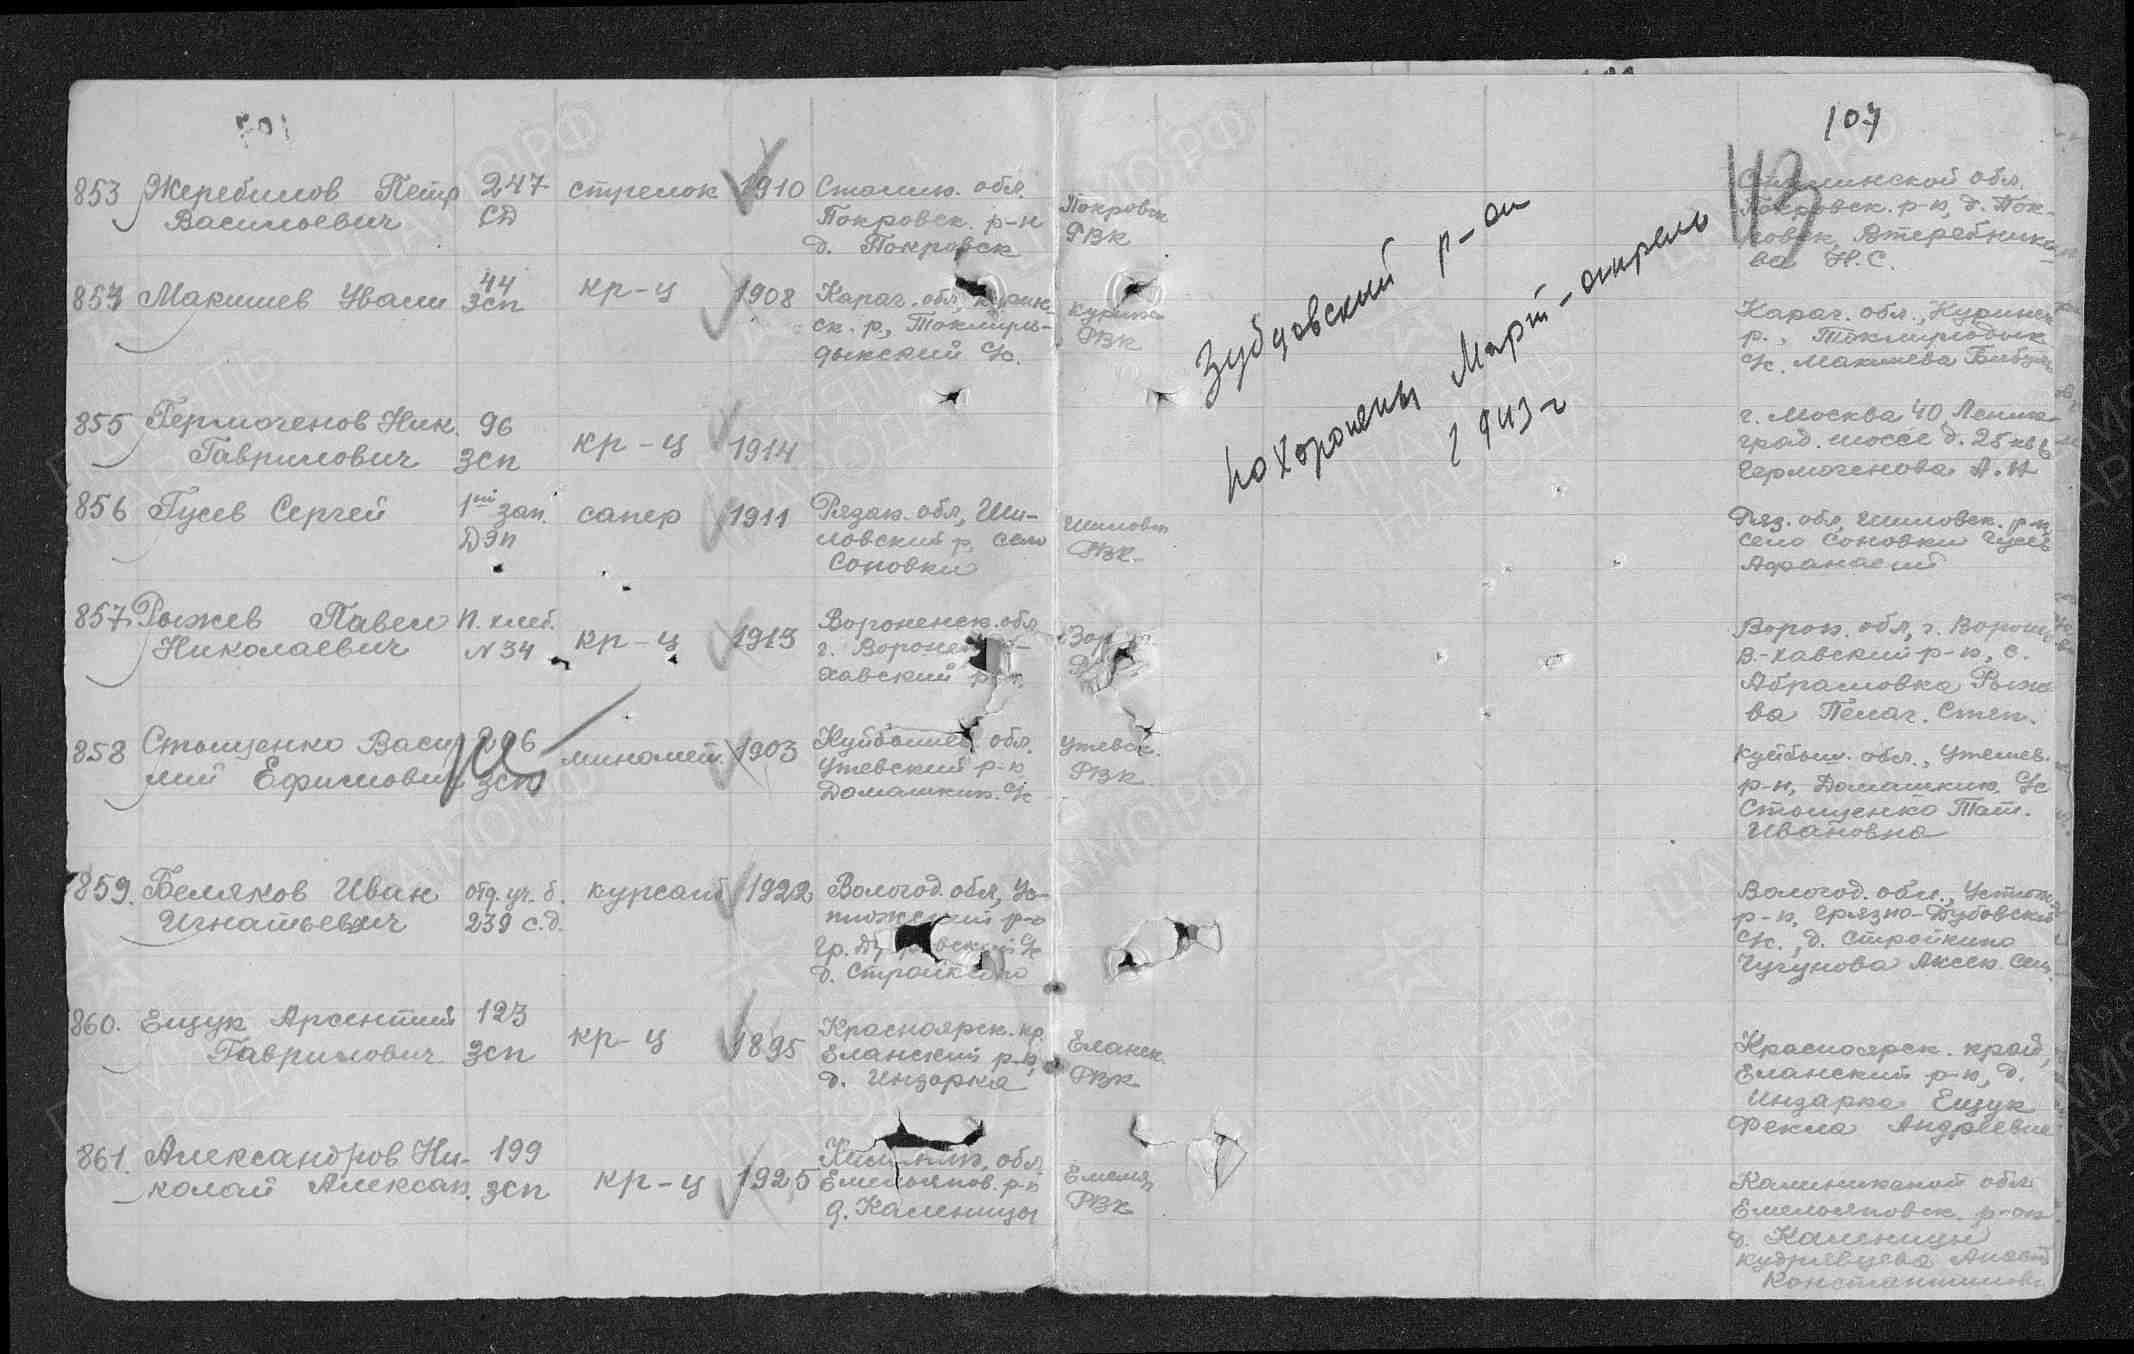 107
113
853 Жеребилов Петр 247 стрелок 1910 Сталин. обл.
Васильевич СД Покровск. р-н
д. Покровск
Покровск
РВК
Сталинской обл.
Покровск. р-н, д. Пок-
ровск,
ва Н.С.
Зубцовский р-он
похоронены Март-апрель
1943 г
854 Макишев Ували 44 кр-ц 1908 Караг. обл.,
зсп ск. р.,
дыкский с/с.
РВК
Караг. обл., Куринск
р.,
с/с. Макишева
855 Гермогенов Ник. 96 кр-ц 1914
Гаврилович зсп
г. Москва 40 Ленин-
град. шоссе д. 25 кв 6
Гермогенова А. Н
856 Гусев Сергей 1ый зап. сапер 1911 Рязан. обл., Ши-
ДЭп ловский р. село
Соповки
Шиловск
РВК
Ряз. обл., Шиловск. р-н
село Соновки Гусев
Афанасий
857. Рыжев Павел П. хлеб. кр-ц 1913 Воронежск. обл
Николаевич N 34 г. Воронеж
хавский р-н.
Ворон. обл., г. Ворон
В.-хавский р-н, с.
Абрамовка Рыже
ва Пелаг. Степ.
858 Стощенко Васи 206 миномет. 1903 Куйбышев. обл.
лий Ефимович зсп Утевский р-н
Домашкин. с/с
Утевск.
РВК
Куйбыш. обл.,
р-н, Домашкин. с/с
Стощенко Тат.
Ивановна
859. Беляков Иван отд. уч. б. курсант 1922 Вологод. обл., Ус-
Игнатьевич 239 с.д. тюженский р-н
гр. Дубровский с/с
д. Стройкино
Вологод. обл., Устюж
р-н, Грязно-Дубовский
с/с., д. Стройкино
Чугунова Алек. Сем.
860. Ещук Арсентий 123 кр-ц 1895 Красноярск. кр.
Гаврилович зсп Еланский р-н,
д. Индарка
Еланск.
РВК
Красноярск. край,
Еланский р-н, д.
Индарка Ещук
Фекла Андреевна
861. Александров Ни- 199 кр-ц 1925 Калинин. обл.
колай Алексан. зсп Емельянов. р-н
д. Каменицы
Емельян
РВК
Калининской обл
Емельяновск. р-он
д. Каменицы
Кудрявцева
Константинов